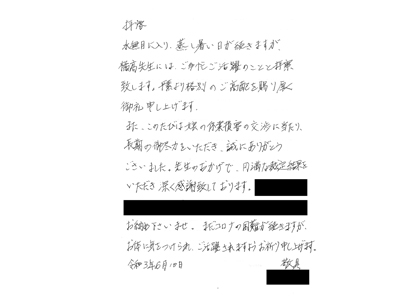 拝啓
水無月に入り、蒸し暑い日が続きますが、
先生には、ご活躍のことと拝察
致します。様より格別のご高配を賜り厚く
御礼申し上げます。
また、このたびは の休業損害の交渉に当たり、
長期の御尽力をいただき、誠にありがとう
ございました。先生のおかげで、円満な 結果を
いただき 深く感謝致しております。
お納め下さいませ。まだコロナの困難が続きますが、
お体に気をつけられ、ご活躍されますようお祈り申し上げます。
令和3年6月 日 敬具